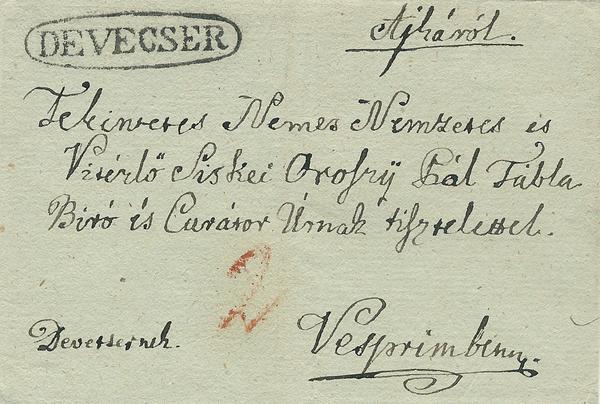 DEVECSER
Ajkáról.
Tekintetes Nemes Nemzetes és
Vitézlő Siskei Oroszÿ Pál Tábla
Biró és Curátor Úrnak tisztelettel.
2
Devetsernek.
Vesprimbenn.